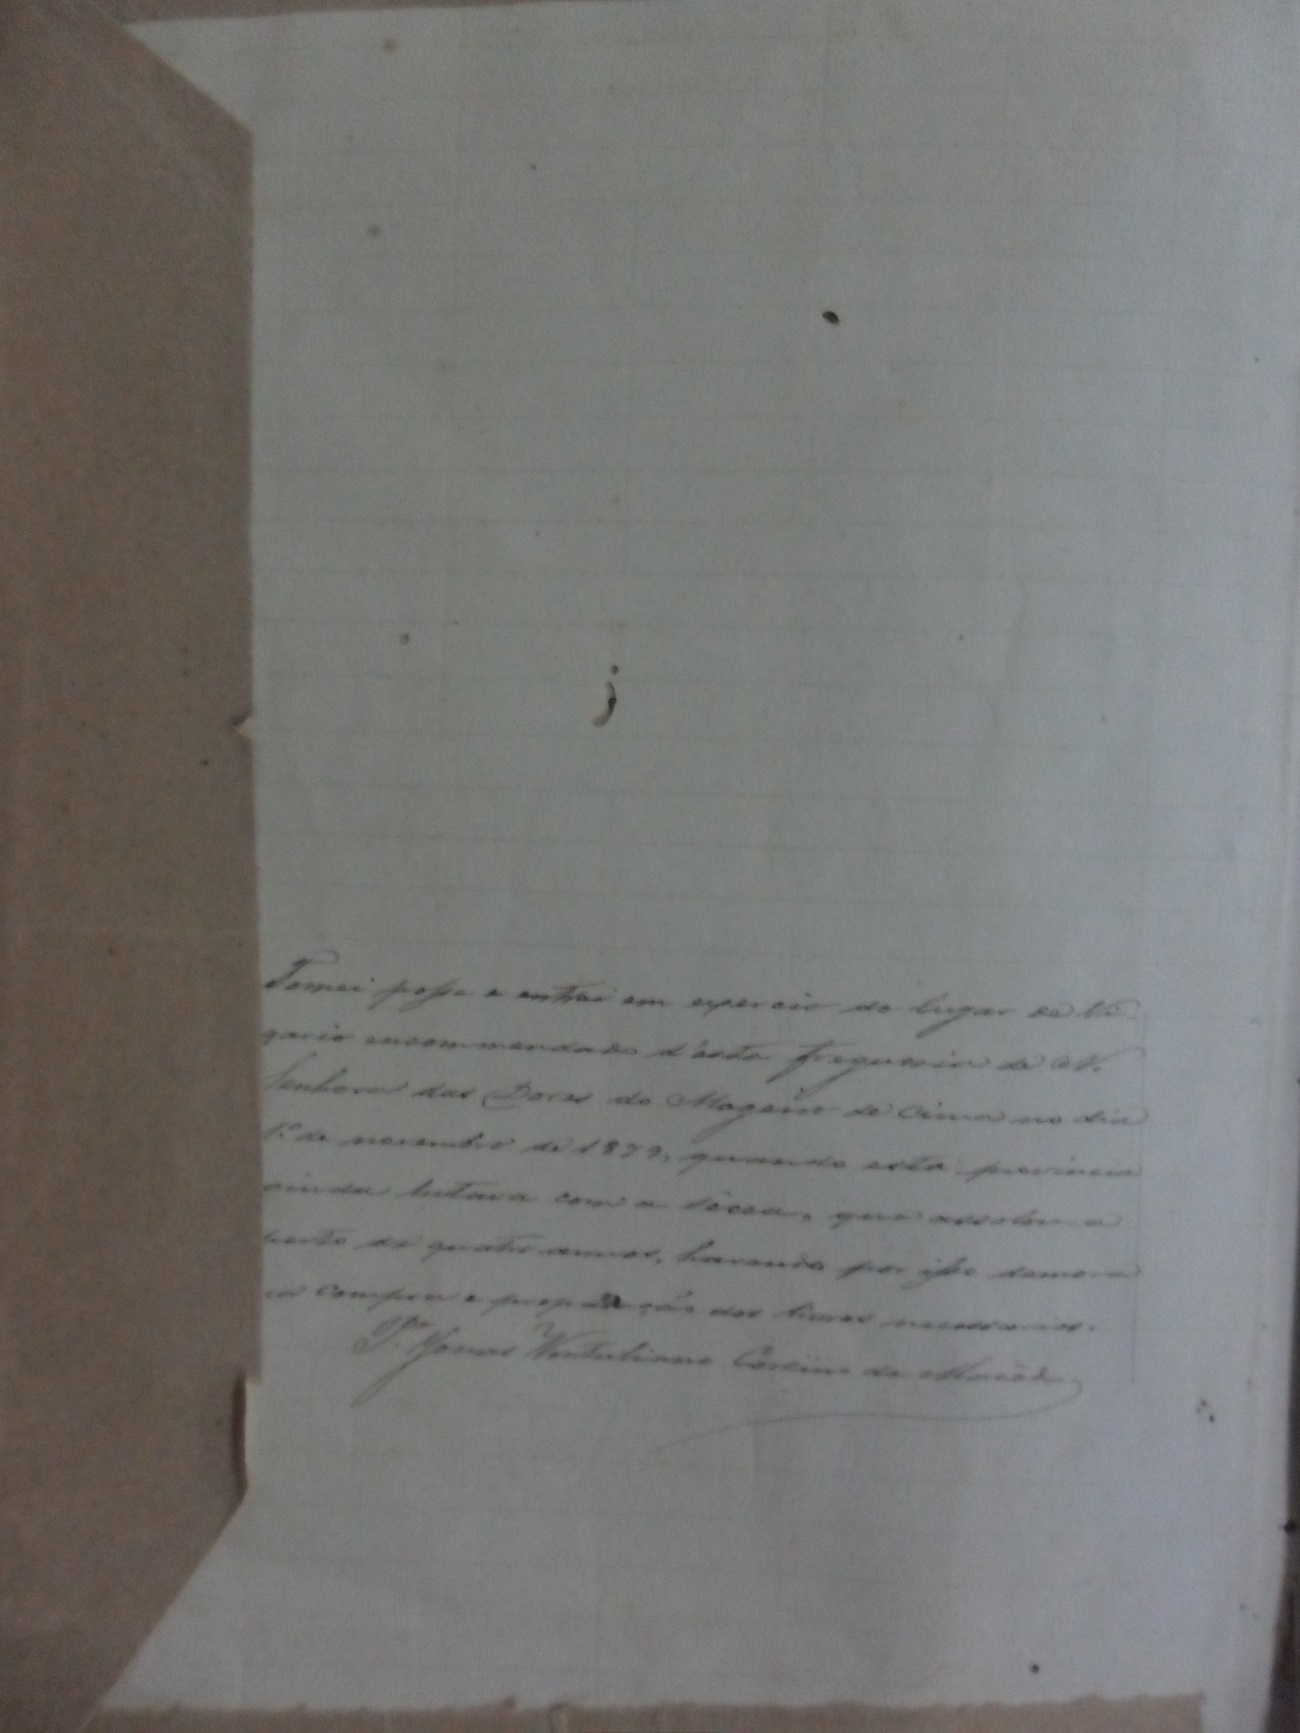 Tomei posse e entrei em exercicio do lugar de Vi-
gario encommendado d'esta freguesia de N.
Senhora das Dores do de Cima no dia
1.º de novembro de 1879, quando esta provincia
ainda lutava com a sêcca, que assolou-a
perto de quatro annos, havendo por isso demora
na compra e preparação dos livros necessarios.
P.e de Macêdo